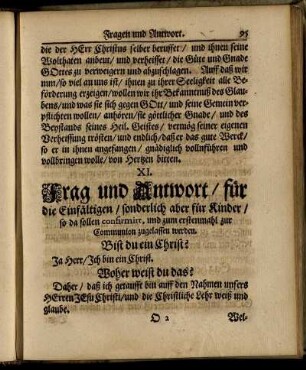 Fragen und Antwort. 95
die der HErr Christus selber beruffet / und ihnen seine
Wolthaten anbeut / und verheisset / die Güte und Gnade
GOttes zu verweigern und abzuschlagen. Auff daß wir
nun / so viel an uns ist / ihnen zu ihrer Seeligkeit alle Be-
förderung erzeigen / wollen wir ihr Bekanntnuß des Glau-
bens / und was sie sich gegen GOtt / und seine Gemein ver-
pflichten wollen / anhören / sie göttlicher Gnad / und des
Beystands seines Heil. Geistes / vermög seiner eigenen
Verheissung trösten / und endlich / daß er das gute Werck /
so er in ihnen angefangen / gnädiglich vollnführen und
vollbringen wolle / von Hertzen bitten.
XI.
Frag und Antwort / für
die Einfältigen / sonderlich aber für Kinder /
so da sollen confirmirt, und zum erstenmahl zur
Communion zugelassen werden.
Bist du ein Christ?
Ja Herr / Ich bin ein Christ.
Woher weist du das?
Daher / daß ich getaufft bin auff den Nahmen unsers
HErren JEsu Christi / und die Christliche Lehr weiß und
glaube.
O 2 Wel-